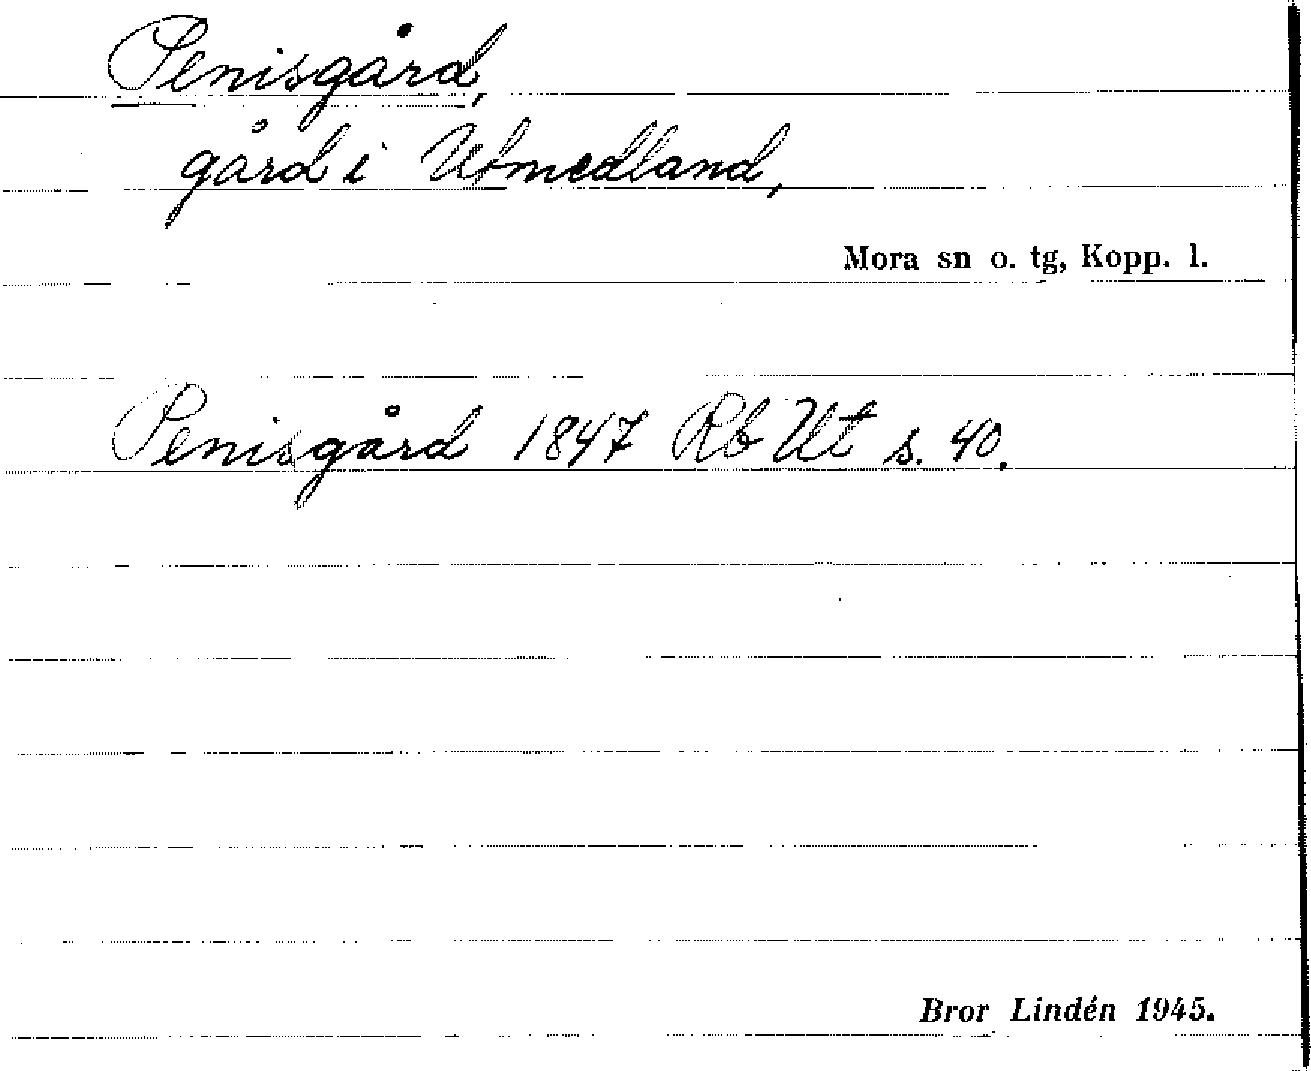 Penisgård,
gård i Utmedland,
Mora sn o. tg, Kopp. l.
Penisgård 1847 Rb Ut s. 40.
Bror Lindén 1945.